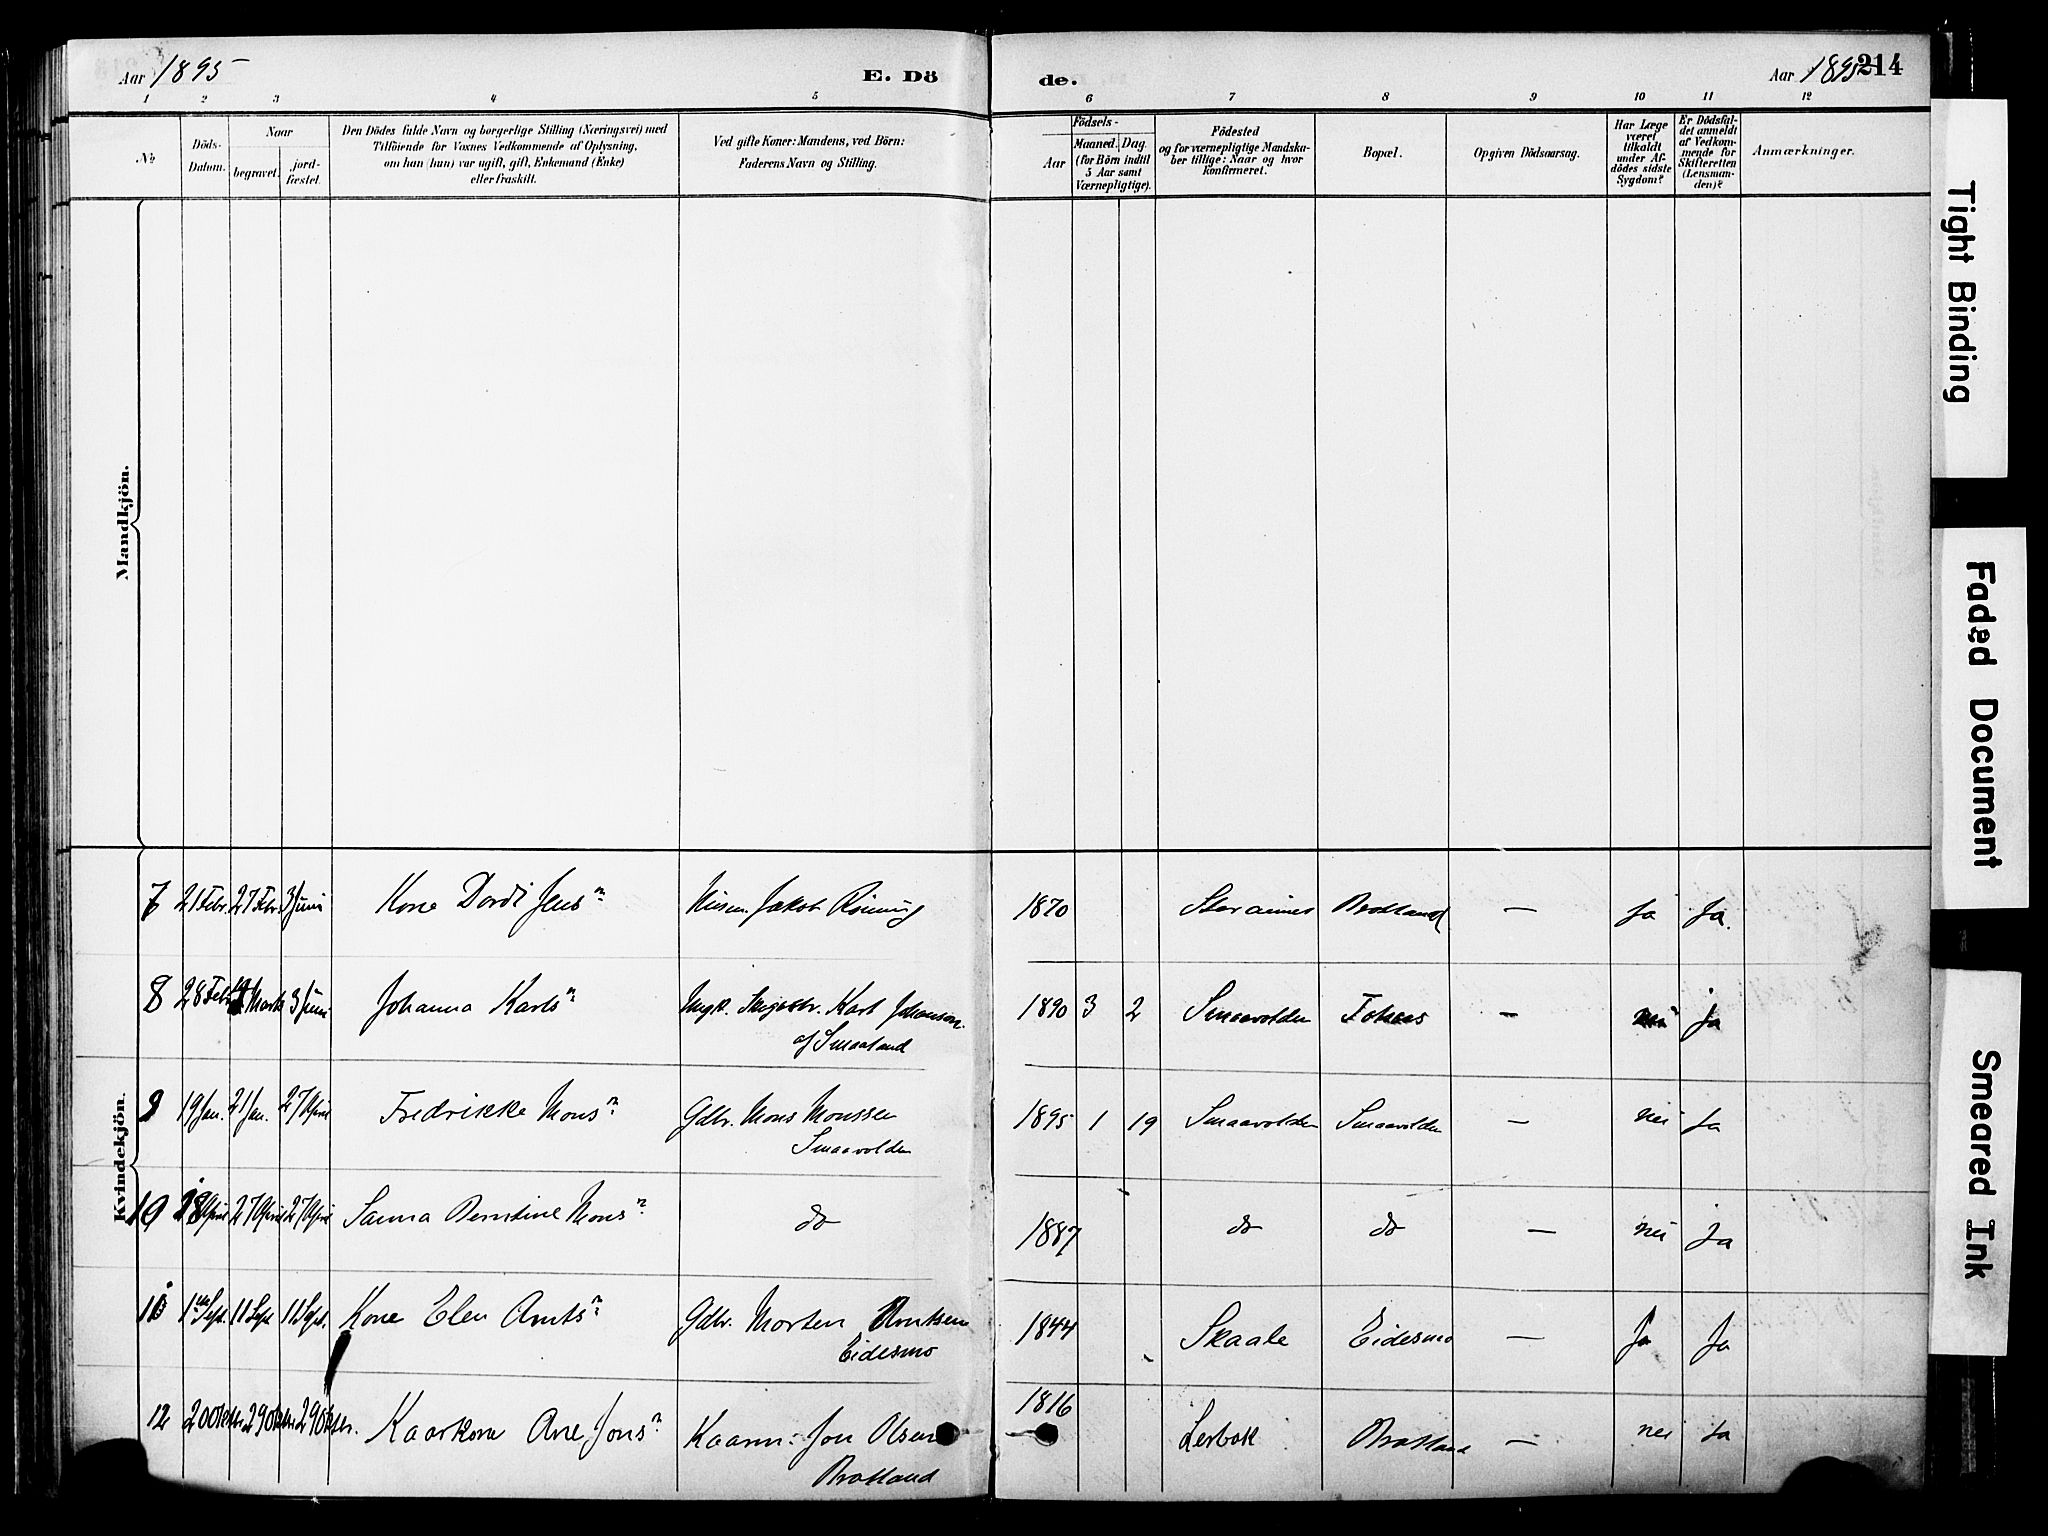 Aar 1895
E. Dö
de.
Aar 1895
214
1 2 3 4 5 6 7 8 9 10 11 12
No
Döds-
Datum.
Naar
begravet.
jord-
fæstet.
Den Dödes fulde Navn og borgerlige Stilling (Næringsvei) med
Tilföiende for Voxnes Vedkommende af Oplysning,
om han (hun) var ugift, gift, Enkemand (Enke)
eller fraskilt.
Ved gifte Koner: Mandens, ved Börn:
Faderens Navn og Stilling.
Födsels-
Aar
Maaned. Dag.
(for Börn indtil
5 Aar samt
Værnepligtige).
Födested
og for værnepligtige Mandska-
ber tillige: Naar og hvor
konfirmeret.
Bopæl.
Opgiven Dödsaarsag.
Har Læge
været
tilkaldt
under Af-
dödes sidste
Sygdom?
Er Dödsfal-
det anmeldt
af Vedkom-
mende for
Skifteretten
(Lensman-
den)?
Anmærkninger.
Mandkjön.
Kvindekjön.
7 21 Febr. 27 Febr. 3 Juni Kone Dordi Jensn Jakob Röning 1870 Brotland — ja Ja.
8 28 Febr. Marts 3 Juni Johanna Karlsn Karl Johanson 1890 3 2 Smaavolden — nei ja
af Smaaland
9 19 Jan. 21 Jan. 27 April Fredrikke Monsn Gdbr. Mons Monssen 1895 1 19 Smaavolden Smaavolden — nei Ja
Smaavolden
10 18 April 27 April 27 April Sanna Berntine Monsn do 1887 do do — nei Ja
11 1 Sept. 11 Sept 11 Sept. Kone Elen Arntsn Gdbr. Morten Arntsen 1844 Skaale Eidesmo — Ja Ja
Eidesmo
12 20 Oktbr. 29 Oktbr. 29 Oktbr. Kaarkone Ane Jonsn Kaarm: Jon Olsen 1816 Lerbak Brotland — nei Ja
Brotland
Tight Binding
Faded Document
Smeared Ink